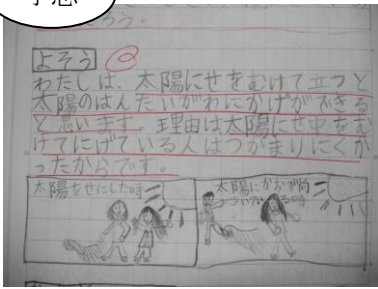 予想
よそう
わたしは、太陽にせをむけて立つと
太陽のはんたいがわにかげができる
と思います。理由は太陽にせ中をむ
けてにげている人はつかまりにくか
ったからです。
太陽をせにした時
太陽にかおが向